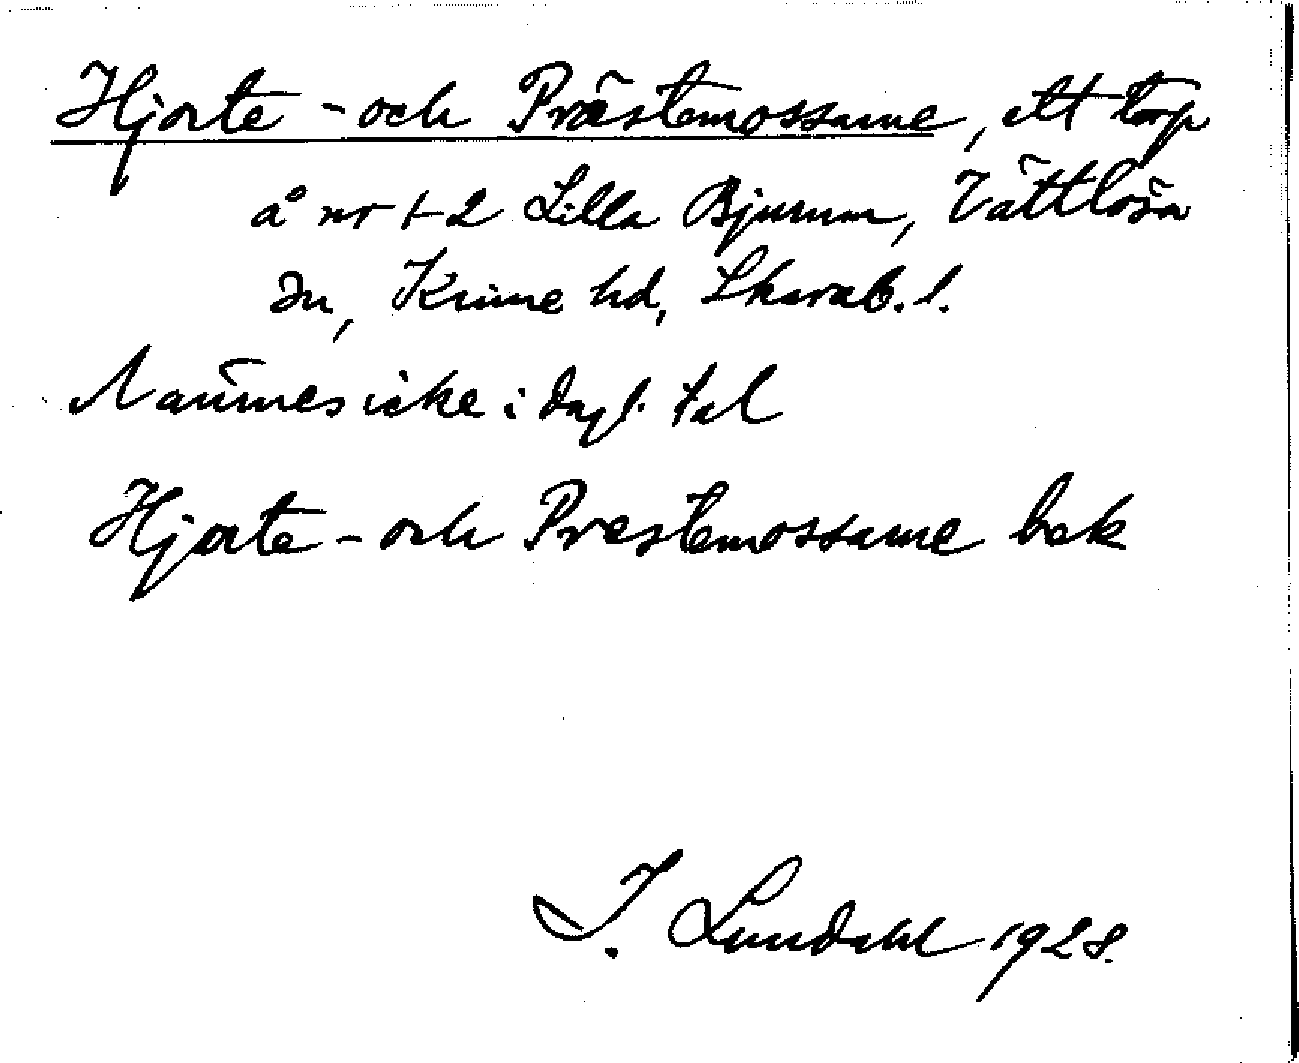 Hjorte- och Prästemossarne, ett torp
å nr 1-2 Lilla Bjurum, Vättlösa
sn, Kinne hd, Skarab. l.
Namnes icke i dagl. tal
Hjorte- och Præstemossarne bek
I. Lundahl 1928.